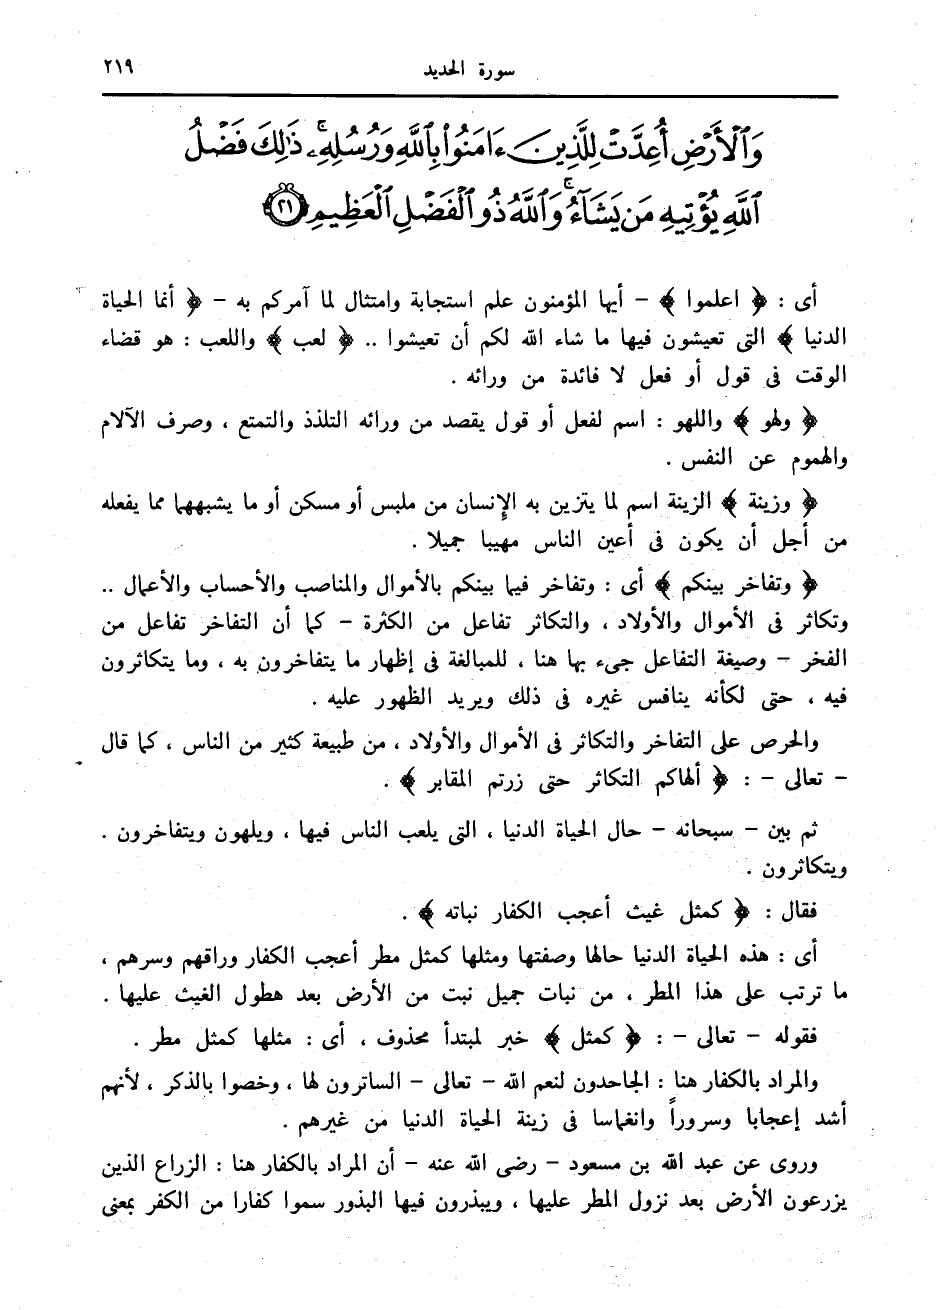 سورة الحديد ٢١٩
وَٱلْأَرْضِ أُعِدَّتْ لِلَّذِينَ ءَامَنُوا۟ بِٱللَّهِ وَرُسُلِهِۦ ۚ ذَٰلِكَ فَضْلُ
ٱللَّهِ يُؤْتِيهِ مَن يَشَآءُ ۚ وَٱللَّهُ ذُو ٱلْفَضْلِ ٱلْعَظِيمِ ﴿٢١﴾
أى : ﴿ اعلموا ﴾ – أيها المؤمنون علم استجابة وامتثال لما آمركم به – ﴿ أنما الحياة
الدنيا ﴾ التى تعيشون فيها ما شاء الله لكم أن تعيشوا .. ﴿ لعب ﴾ واللعب : هو قضاء
الوقت فى قول أو فعل لا فائدة من ورائه .
﴿ ولهو ﴾ واللهو : اسم لفعل أو قول يقصد من ورائه التلذذ والتمتع ، وصرف الآلام
والهموم عن النفس .
﴿ وزينة ﴾ الزينة اسم لما يتزين به الإنسان من ملبس أو مسكن أو ما يشبههما مما يفعله
من أجل أن يكون فى أعين الناس مهيبا جميلا .
﴿ وتفاخر بينكم ﴾ أى : وتفاخر فيما بينكم بالأموال والمناصب والأحساب والأعمال ..
وتكاثر فى الأموال والأولاد ، والتكاثر تفاعل من الكثرة – كما أن التفاخر تفاعل من
الفخر – وصيغة التفاعل جىء بها هنا ، للمبالغة فى إظهار ما يتفاخرون به ، وما يتكاثرون
فيه ، حتى لكأنه ينافس غيره فى ذلك ويريد الظهور عليه .
والحرص على التفاخر والتكاثر فى الأموال والأولاد ، من طبيعة كثير من الناس ، كما قال
– تعالى – : ﴿ ألهاكم التكاثر حتى زرتم المقابر ﴾ .
ثم بين – سبحانه – حال الحياة الدنيا ، التى يلعب الناس فيها ، ويلهون ويتفاخرون .
ويتكاثرون .
فقال : ﴿ كمثل غيث أعجب الكفار نباته ﴾ .
أى : هذه الحياة الدنيا حالها وصفتها ومثلها كمثل مطر أعجب الكفار وراقهم وسرهم ،
ما ترتب على هذا المطر ، من نبات جميل نبت من الأرض بعد هطول الغيث عليها .
فقوله – تعالى – : ﴿ كمثل ﴾ خبر لمبتدأ محذوف ، أى : مثلها كمثل مطر .
والمراد بالكفار هنا : الجاحدون لنعم الله – تعالى – الساترون لها ، وخصوا بالذكر ، لأنهم
أشد إعجابا وسروراً وانغماسا فى زينة الحياة الدنيا من غيرهم .
وروى عن عبد الله بن مسعود – رضى الله عنه – أن المراد بالكفار هنا : الزراع الذين
يزرعون الأرض بعد نزول المطر عليها ، ويبذرون فيها البذور سموا كفارا من الكفر بمعنى